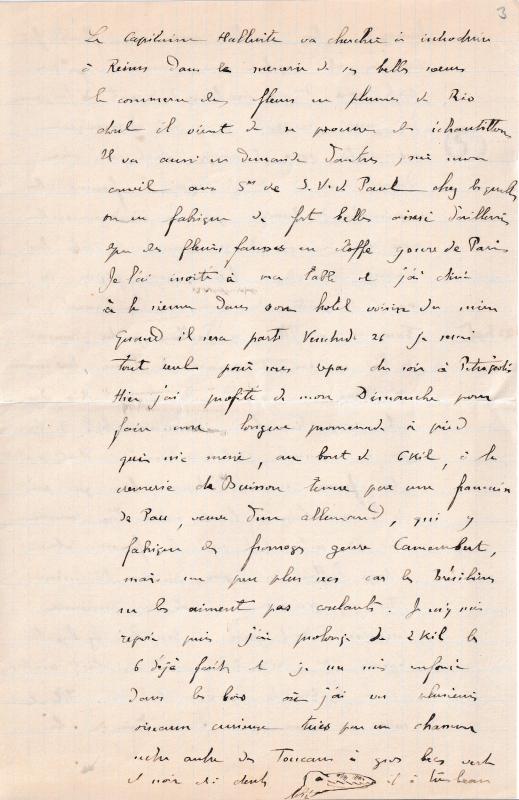 3
Le Capitaine Halluite va chercher à introduire
à Reims dans la mercerie de ses belles sœurs
le commerce des fleurs en plumes de Rio
dont il vient de se procurer des échantillons
Il va aussi en demander d'autres, suivant mon
conseil aux Srs de S. V. de Paul chez lesquelles
on en fabrique de fort belles ainsi d'ailleurs
que des fleurs fausses en étoffe genre de Paris
Je l'ai invité à ma table et j'ai dîné
à la sienne dans son hotel voisin du mien
Quand il sera parti Vendredi 26 je serai
tout seul pour mes repas du soir à Pétropolis
Hier j'ai profité de mon Dimanche pour
faire une longue promenade à pied
qui m'a mené, au bout de 6 Kil, à la
cremerie de Buisson tenue par une française
de Pau, veuve d'un allemand, qui y
fabrique des fromages genre Camembert,
mais un peu plus secs car les Brésiliens
ne les aiment pas coulants. Je m'y suis
reposé puis j'ai prolongé de 2 Kil les
6 déjà faits et je me suis enfoncé
dans les bois où j'ai vu plusieurs
oiseaux curieux tués par un chasseur
entre autre des Toucans à gros becs verts
et noir et dents il a très beau